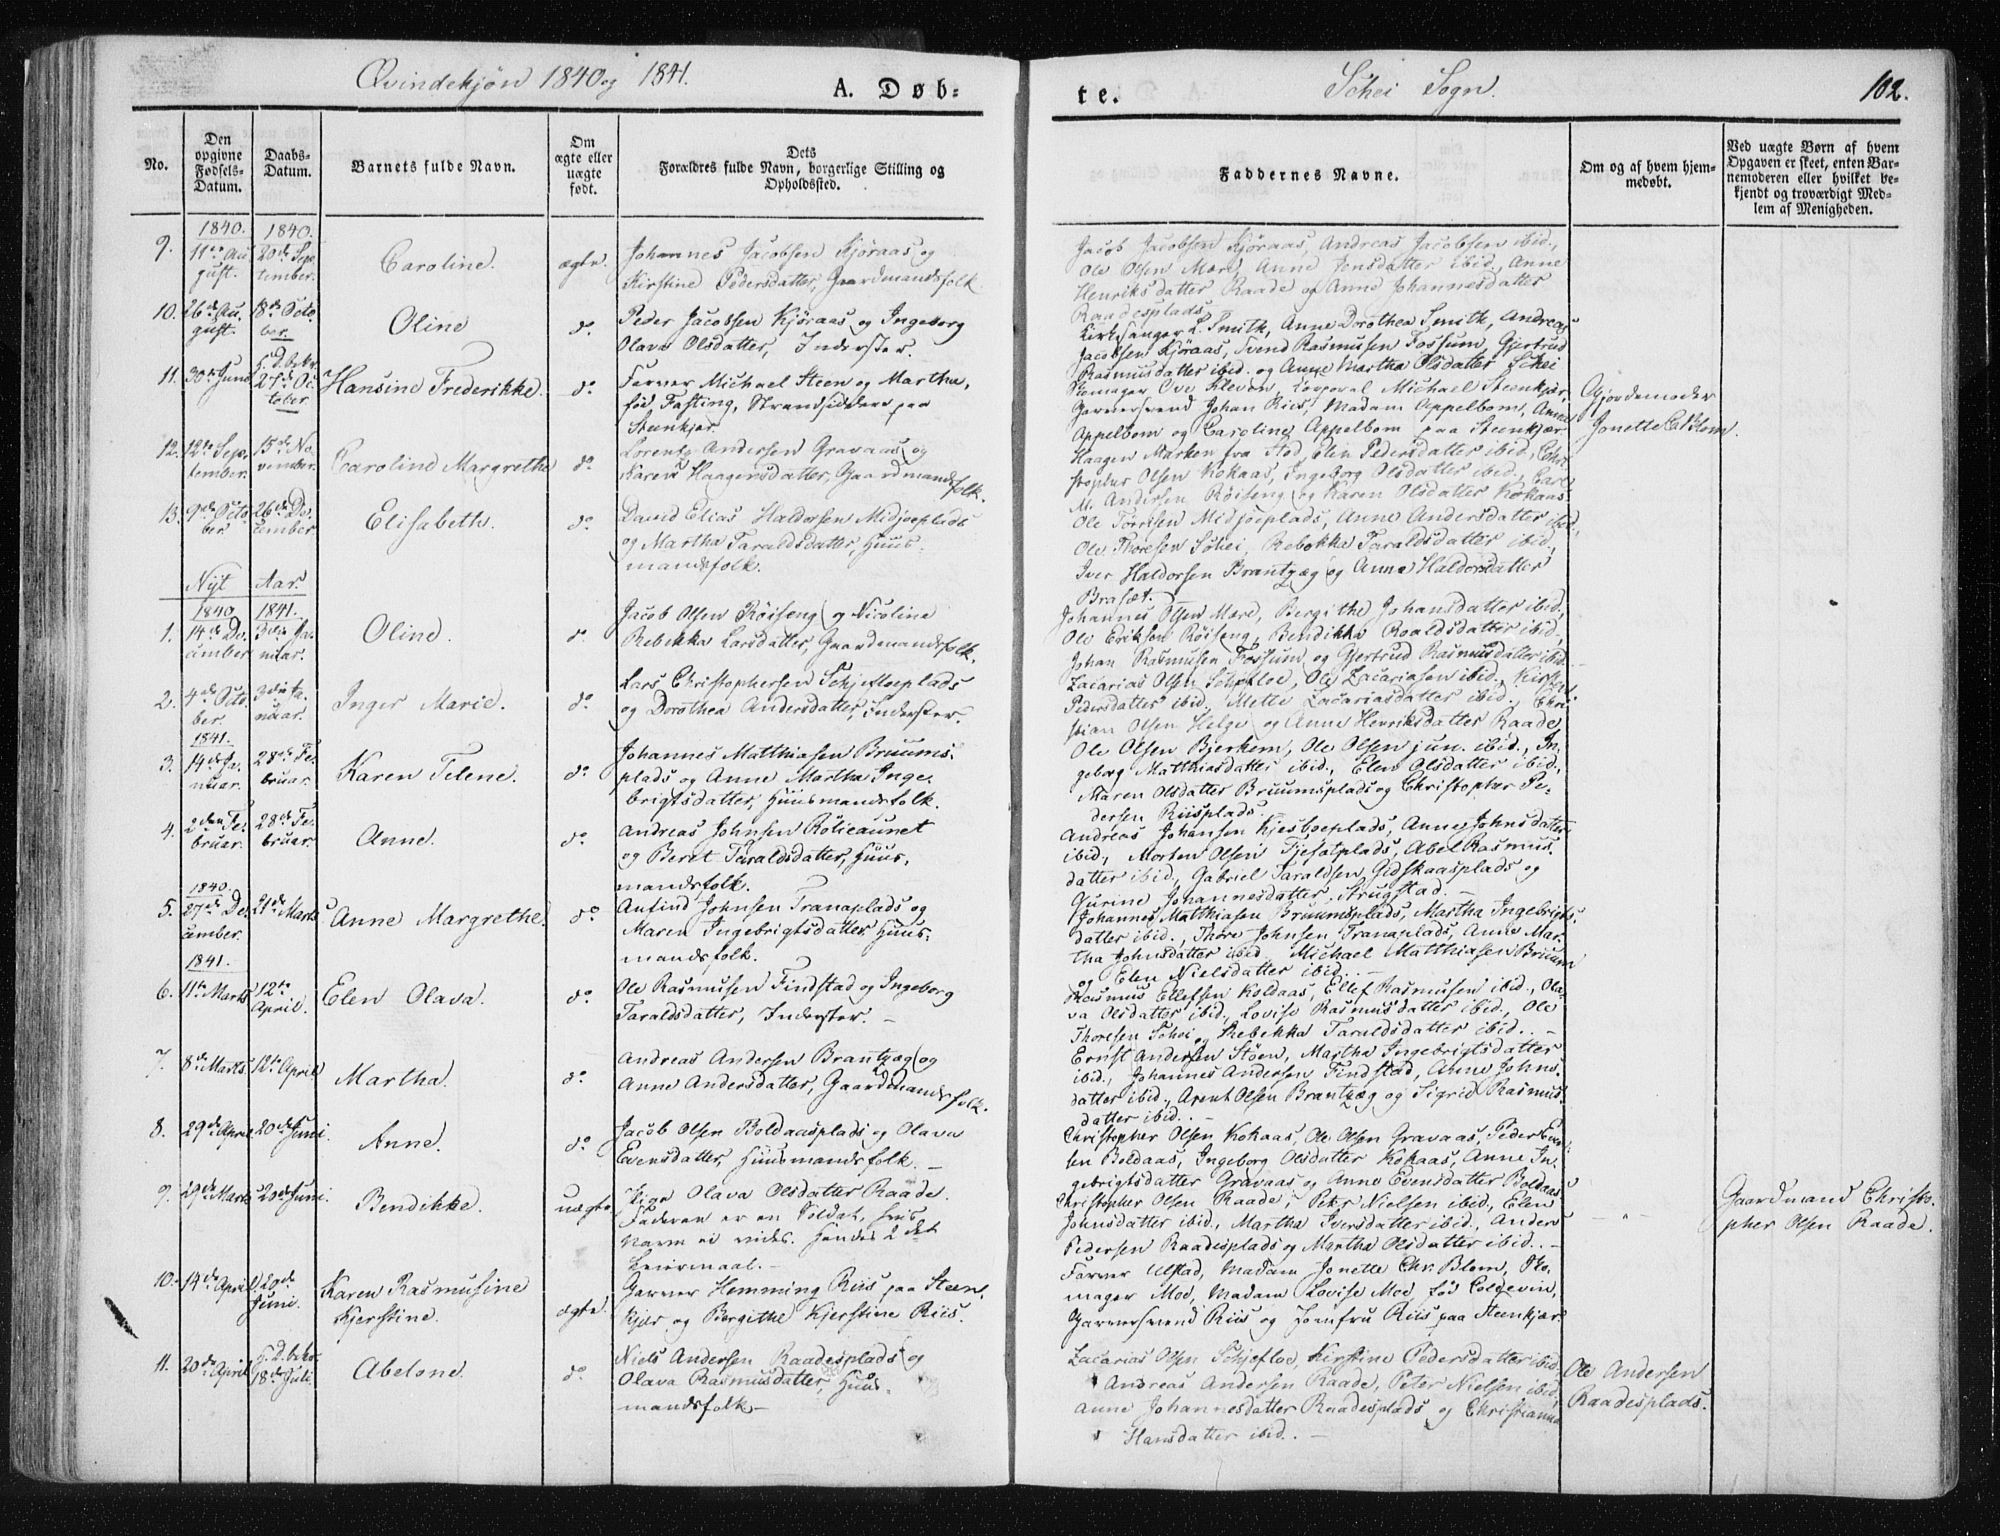 Qvindekjøn 1840 og 1841.
A. Døb-
te.
Schei Sogn.
102.
No.
Den opgivne Fødsels-Datum.
Daabs-Datum.
Barnets fulde Navn.
Om ægte eller uægte født.
Dets Forældres fulde Navn, borgerlige Stilling og Opholdssted.
Faddernes Navne.
Om og af hvem hjemmedøbt.
Ved uægte Børn af hvem Opgaven er skeet, enten Barnemoderen eller hvilket bekjendt og troværdigt Medlem af Menigheden.
1840. 1840.
9. 11te August. 20de September. Caroline. ægte.
Johannes Jacobsen Kjøraas og
Kirstine Pedersdatter, Gaardmandsfolk
Jacob Jacobsen Kjøraas, Andreas Jacobsen ibid.,
Ole Olsen Mære, Anne Jensdatter ibid., Anne
Henriksdatter Raade og Anne Johannesdatter
Raadesplads.
10. 26de August. 18de October. Oline do.
Peder Jacobsen Kjøraas og Ingeborg
Olava Olsdatter, Inderster.
Kirkesanger L. Smith, Anne Dorothea Smith, Andreas
Jacobsen Kjøraas, Svend Rasmusen Fossum, Gjertrud
Rasmusdatter ibid. og Anne Martha Olsdatter Schei
11. 30te Juni 27de October. Hansine Frederikke. do.
Farver Michael Steen og Martha,
fød Fasting, Strandsiddere paa
Steenkjær.
Skomager Ove Kleven, Corporal Michael Steenkjær,
Garversvend Johan Riis, Madam Appelbom, Anne
Appelbom og Caroline Appelbom paa Steenkjær.
Gjordemoder
Jonette
12. 12te September. 15de November. Caroline Margrethe do.
Lorentz Andersen Gravaas og
Karen Haagensdatter, Gaardmandsfolk.
Haagen Marken fra Stod, Elen Pedersdatter ibid., Chri-
stopher Olsen Kokaas, Ingeborg Olsdatter ibid., Carl
M. Andersen Røiseng og Karen Olsdatter Kokaas.
13. 9de October. 26de December Elisabeth. do.
David Elias Haldorsen Midjoeplads
og Martha Taraldsdatter, Huus-
mandsfolk.
Ole Torrisen Midjoeplads, Anne Andersdatter ibid.,
Ole Thoresen Schei, Rebekka Taraldsdatter ibid.,
Iver Haldorsen Brantzæg og Anne Haldorsdatter
Brasæt.
Nyt Aar.
1840. 1841.
1. 14de December 3die Januar. Oline. do.
Jacob Olsen Røiseng og Nicoline
Rebekka Larsdatter, Gaardmandsfolk.
Johannes Olsen Mære, Bergithe Johansdatter ibid.
Ole Eriksen Røiseng, Bendikka Roaldsdatter ibid.,
Johan Rasmusen Fossum og Gjertrud Rasmusdatter ibid.
2. 4de October. 3die Januar. Inger Marie. do.
Lars Christophersen Schjefloeplads
og Dorothea Andersdatter, Inderster.
Zacarias Olsen Schjefloe, Ole Zacariasen ibid., Kirsten
Pedersdatter ibid. Mette Zacariasdatter ibid., Chri-
stian Olsen Helge og Anne Henriksdatter Raade
1841.
3. 14de Januar. 28de Februar. Karen Telene. do.
Johannes Matthiasen Bruums-
plads og Anne Martha Inge-
brigtsdatter, Huusmandsfolk.
Ole Olsen Bjerkem, Ole Olsen jun. ibid., In-
geborg Matthiasdatter ibid., Elen Olsdatter ibid.,
Maren Olsdatter Bruumsplads og Christopher Pe-
dersen Riisplads.
4. 2den Februar. 28de Februar. Anne. do.
Andreas Johnsen Rølieaunet
og Beret Taraldsdatter, Huus-
mandsfolk.
Andreas Johansen Kjesboeplads, Anne Johnsdatter
ibid., Morten Olsen Tjesætplads, Abel Rasmus-
datter ibid., Gabriel Taraldsen Gidskaasplads og
Gurine Johannesdatter Strugstad.
1840.
5. 27de December. 21de Marts Anne Margrethe. do
Anfind Johnsen Tranaplads og
Maren Ingebrigtsdatter, Huus-
mandsfolk.
Johannes Matthiasen Bruumsplads, Martha Ingebrigts-
datter ibid., Thore Johnsen Tranaplads, Anne Mar-
tha Johnsdatter ibid., Michael Matthiasen Bruum
og Elen Nielsdatter ibid.
1841.
6. 11te Marts 12te April. Elen Olava. do.
Ole Rasmusen Findstad og Ingeborg
Taraldsdatter, Inderster. —
Rasmus Ellefsen Koldaas, Ellef Rasmusen ibid., Ola-
va Olsdatter ibid., Lovise Rasmusdatter ibid., Ole
Thoresen Schei og Rebekka Taraldsdatter ibid. —
7. 8de Marts. 12te April Martha. do.
Andreas Andersen Brantzæg og
Anne Andersdatter, Gaardmandsfolk.
Ernst Andersen Stöen, Martha Ingebrigtsdatter
ibid., Johannes Andersen Findstad, Anne Johns-
datter ibid., Arent Olsen Brantzæg og Sigrid Rasmus-
datter ibid. —
8. 29de April 20de Juni. Anne. do
Jacob Olsen Boldaasplads og Olava
Evensdatter, Huusmandsfolk. —
Christopher Olsen Kokaas, Ole Olsen Gravaas, Peder Even-
sen Boldaas, Ingeborg Olsdatter Kokaas, Anne In-
gebrigtsdatter Gravaas og Anne Evensdatter Boldaas
9. 29de Marts 20de Juni. Bendikke. uægte
Pige Olava Olsdatter Raade.
Faderen er en Soldat, hvis
Navn ei vides. Hendes 2det
Leiermaal. —
Christopher Olsen Raade, Peter Nielsen ibid., Elen
Johnsdatter ibid., Martha Iversdatter ibid., Anders
Pedersen Raadesplads og Martha Olsdatter ibid. —
Gaardmand Christo-
pher Olsen Raade.
10. 14de April 20de Juni. Karen Rasmusine
Kjerstine. ægte.
Garver Hemming Riis paa Steen-
kjær og Bergithe Kjerstine Riis.
Farver Ulstad, Madam Jonette Chr. Blom, Sko-
mager Moe, Madam Lovise Moe, fød Coldevin,
Garversvend Riis og Jomfru Riis paa Steenkjær.
11. 20de April 18de Juli. Abelone. do.
Niels Andersen Raadesplads og
Olava Rasmusdatter, Huus-
mandsfolk —
Zacarias Olsen Schjefloe, Kirstine Pedersdatter ibid.
Andreas Andersen Raade, Peter Nielsen ibid,
Anne Johannesdatter Raadesplads og Christianna
Hansdatter ibid. —
Ole Andersen
Raadesplads.